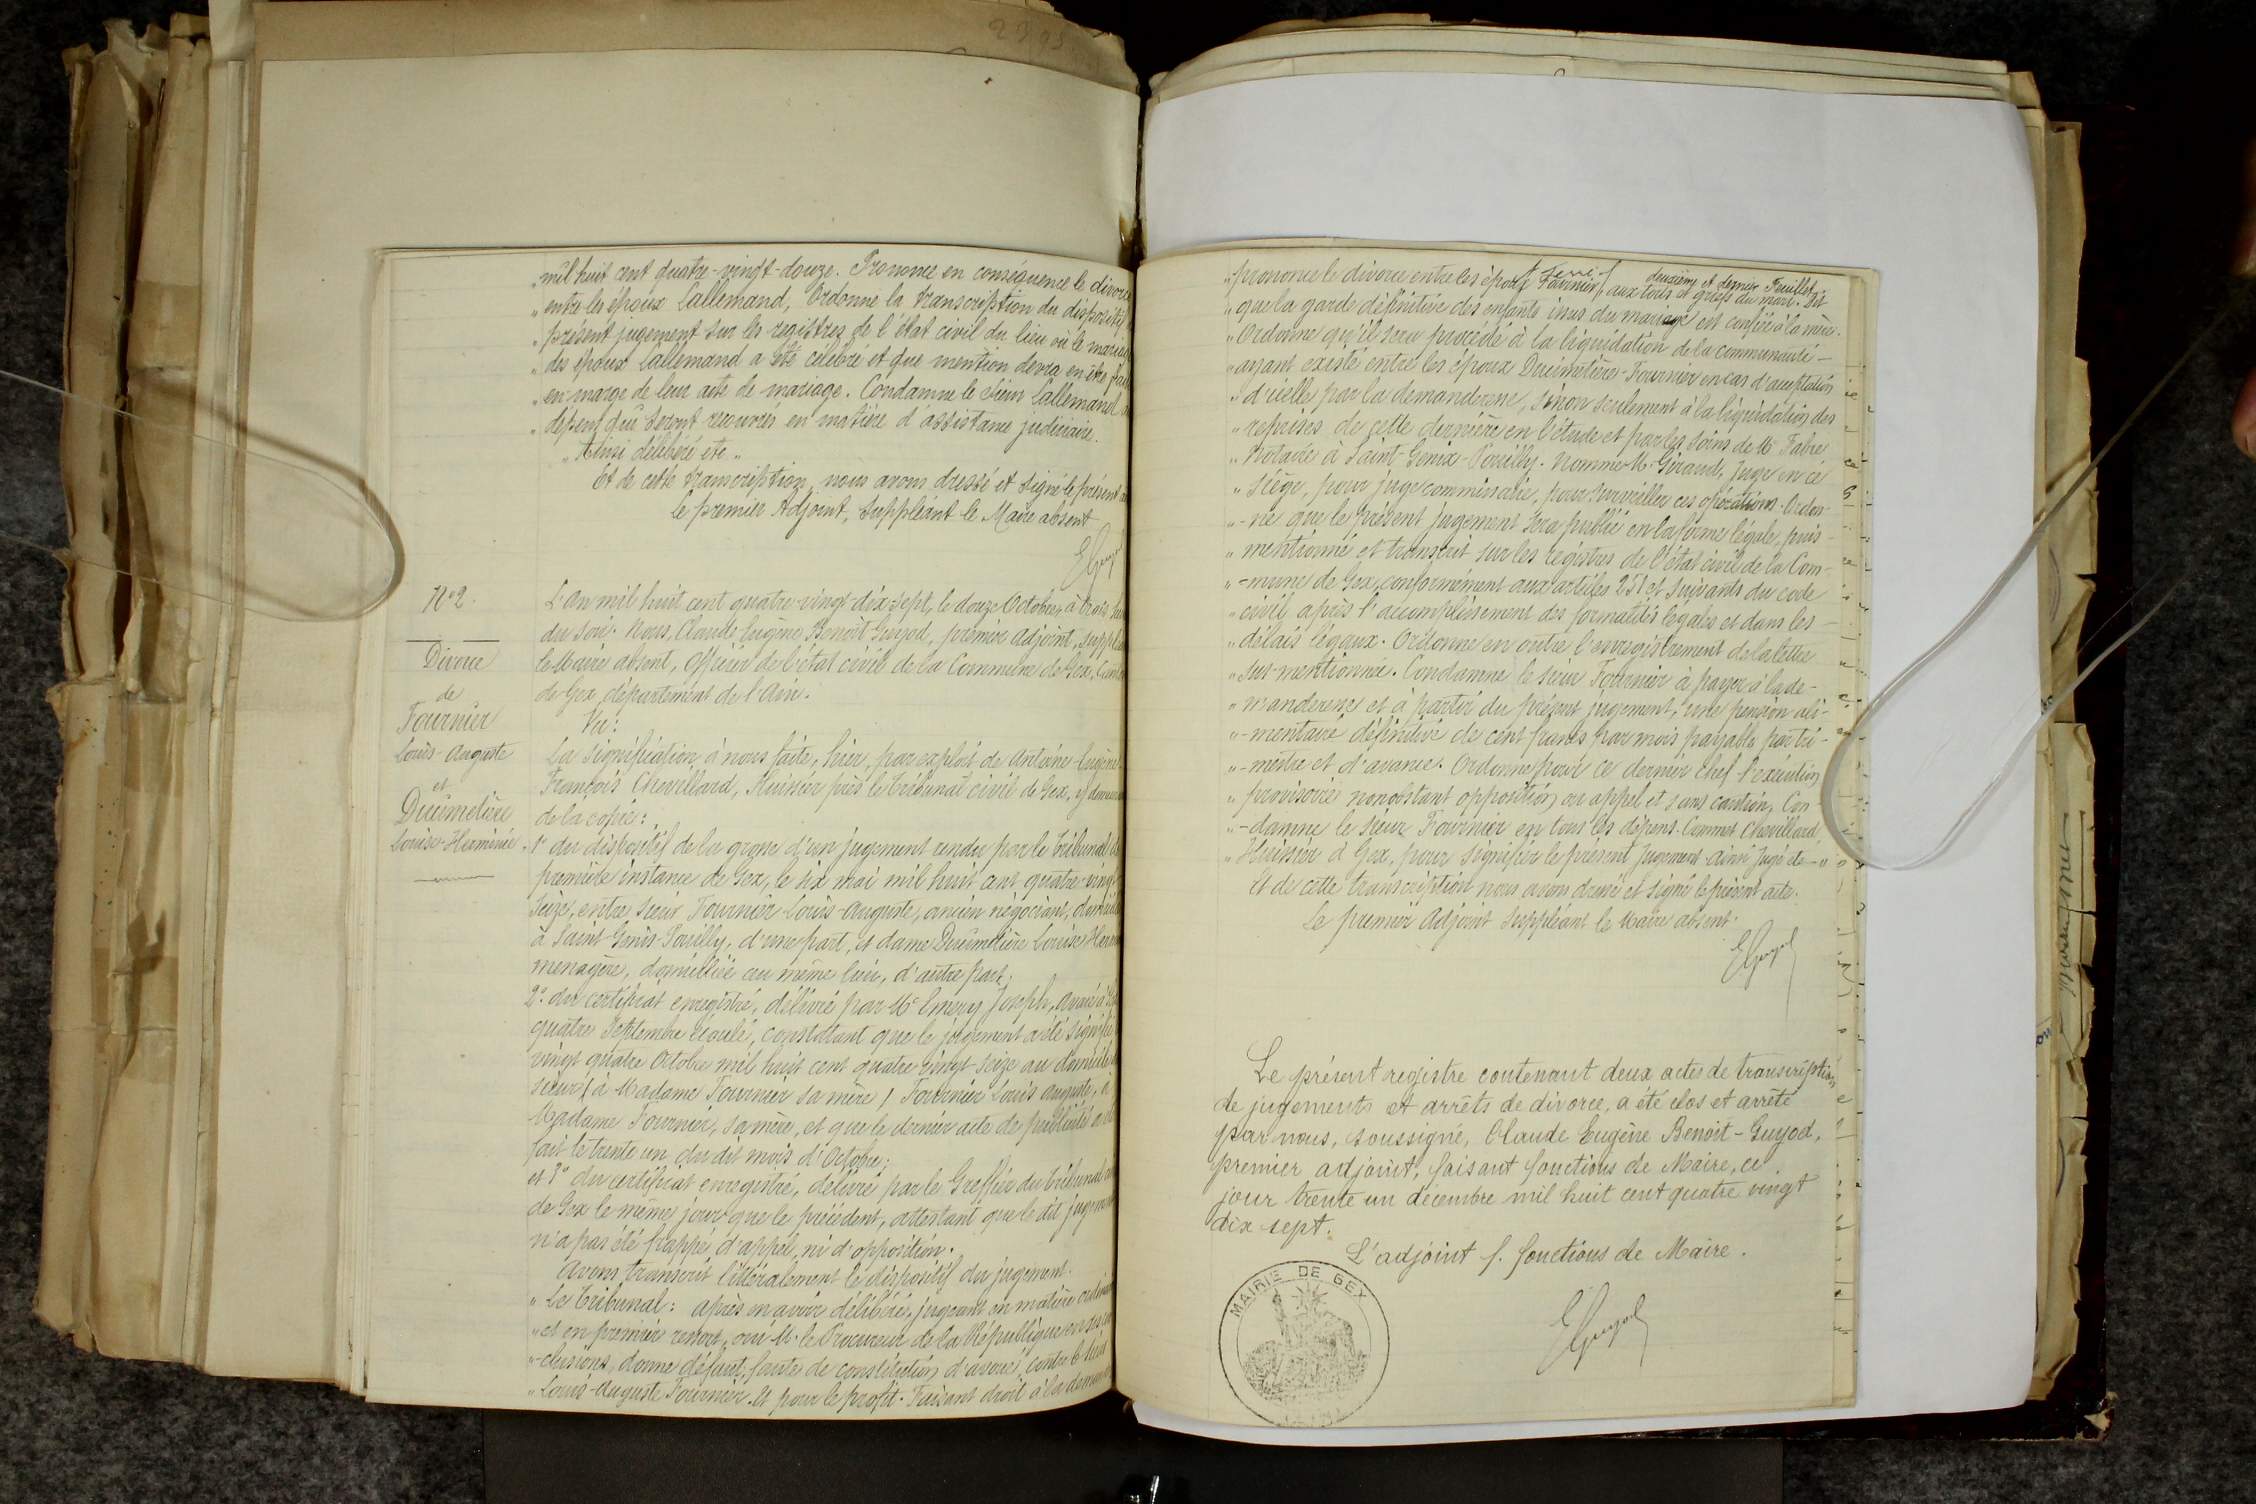 2795
"mil huit cent quatre-vingt-douze. Prononce en conséquence le divorce
"entre les époux Lallemand, Ordonne la transcription du dispositif
"présent jugement sur les registres de l'état civil du lieu où le mariage
"des époux Lallemand a été célébré et que mention devra en être faite
"en marge de leur acte de mariage. Condamne le sieur Lallemand
"dépens qui seront recouvrés en matière d'assistance judiciaire.
"Ainsi délibéré etc"
Et de cette transcription, nous avons dressé et signé le présent
Le premier Adjoint, suppléant le Maire absent
EGuyod
N° 2.
Divorce
de
Fournier
Louis-Auguste
et
Duümetière
Louise-Herminie.
L'an mil huit cent quatre-vingt-dix-sept, le douze Octobre, à trois
du soir. Nous, Claude Eugène Benoît-Guyod, premier adjoint,
le Maire absent, officier de l'état civil de la Commune de Gex, Canton
de Gex, département de l'Ain.
Vu:
La signification à nous faite, hier, par exploit de Antoine-Eugène-
François Chevillard, Huissier près le tribunal civil de Gex, y
de la copie:
1° du dispositif de la grosse d'un jugement rendu par le tribunal de
première instance de Gex, le six mai mil huit cent quatre-vingt
seize, entre sieur Fournier Louis-Auguste, ancien négociant, domicilié
à Saint Genis-Pouilly, d'une part, et dame Duümetière Louise
menagère, domiciliée au même lieu, d'autre part;
2° du certificat enregistré, délivré par Me Emery Joseph, avoué à
quatre Septembre écoulé, constatant que le jugement a été signifié
vingt quatre Octobre mil huit cent quatre vingt seize au domicile
sieur (à Madame Fournier sa mère) Fournier Louis Auguste, à
Madame Fournier, sa mère, et que le dernier acte de publicité a
fait le trente un du dit mois d'Octobre;
et 3° du certificat enregistré, délivré par le Greffier du tribunal
de Gex le même jour que le précédent, attestant que le dit jugement
n'a pas été frappé d'appel, ni d'opposition.
Avons transcrit littéralement le dispositif du jugement.
"Le Tribunal: après en avoir délibéré, jugeant en matière
"et en premier ressort, ouï M. le Procureur de la République en ses
"-clusions, donne défaut, faute de constitution d'avoué, contre le
"Louis-Auguste Fournier. Et pour le profit. Faisant droit à la
deuxième et dernier Feuillet
"prononce le divorce entre les époux Fournier, aux torts et griefs du mari. Dit
"que la garde définitive des enfants issus du mariage est confiée à la mère.
"Ordonne qu'il sera procédé à la liquidation de la communauté-
"ayant existé entre les époux Duümetière-Fournier en cas d'acceptation
"d'icelle par la demanderesse, sinon seulement à la liquidation des
"reprises de cette dernière en l'étude et par les soins de Me Fabre
"Notaire à Saint-Genix-Pouilly. Nomme M. Giraud, Juge en ce
"siège, pour juge commissaire, pour surveiller ces opérations. Ordon-
"-ne que le présent jugement sera publié en la forme légale, puis
"mentionné et transcrit sur les registres de l'état civil de la Com-
"-mune de Gex, conformément aux articles 251 et suivants du code
"civil après l'accomplissement des formalités légales et dans les-
"délais légaux. Ordonne en outre l'enregistrement de la lettre
"sus-mentionnée. Condamne le sieur Fournier à payer à la de-
"manderesse et à partir du présent jugement, une pension ali-
"-mentaire définitive de cent francs par mois payable par tri-
"-mestre et d'avance. Ordonne pour ce dernier chef l'exécution
"provisoire nonobstant opposition ou appel et sans caution. Con-
"-damne le sieur Fournier en tous les dépens. Commet Chevillard
"Huissier à Gex, pour signifier le présent jugement. Ainsi jugé etc-"
Et de cette transcription nous avons dressé et signé le présent acte.
Le premier Adjoint suppléant le Maire absent.
EGuyod
Le présent registre contenant deux actes de transcription
de jugements et arrêts de divorce, a été clos et arrêté
par nous, soussigné, Claude Eugène Benoit-Guyod,
premier adjoint, faisant fonctions de Maire, ce
jour trente un décembre mil huit cent quatre vingt
dix sept.
L'adjoint f. fonctions de Maire.
EGuyod
MAIRIE DE GEX